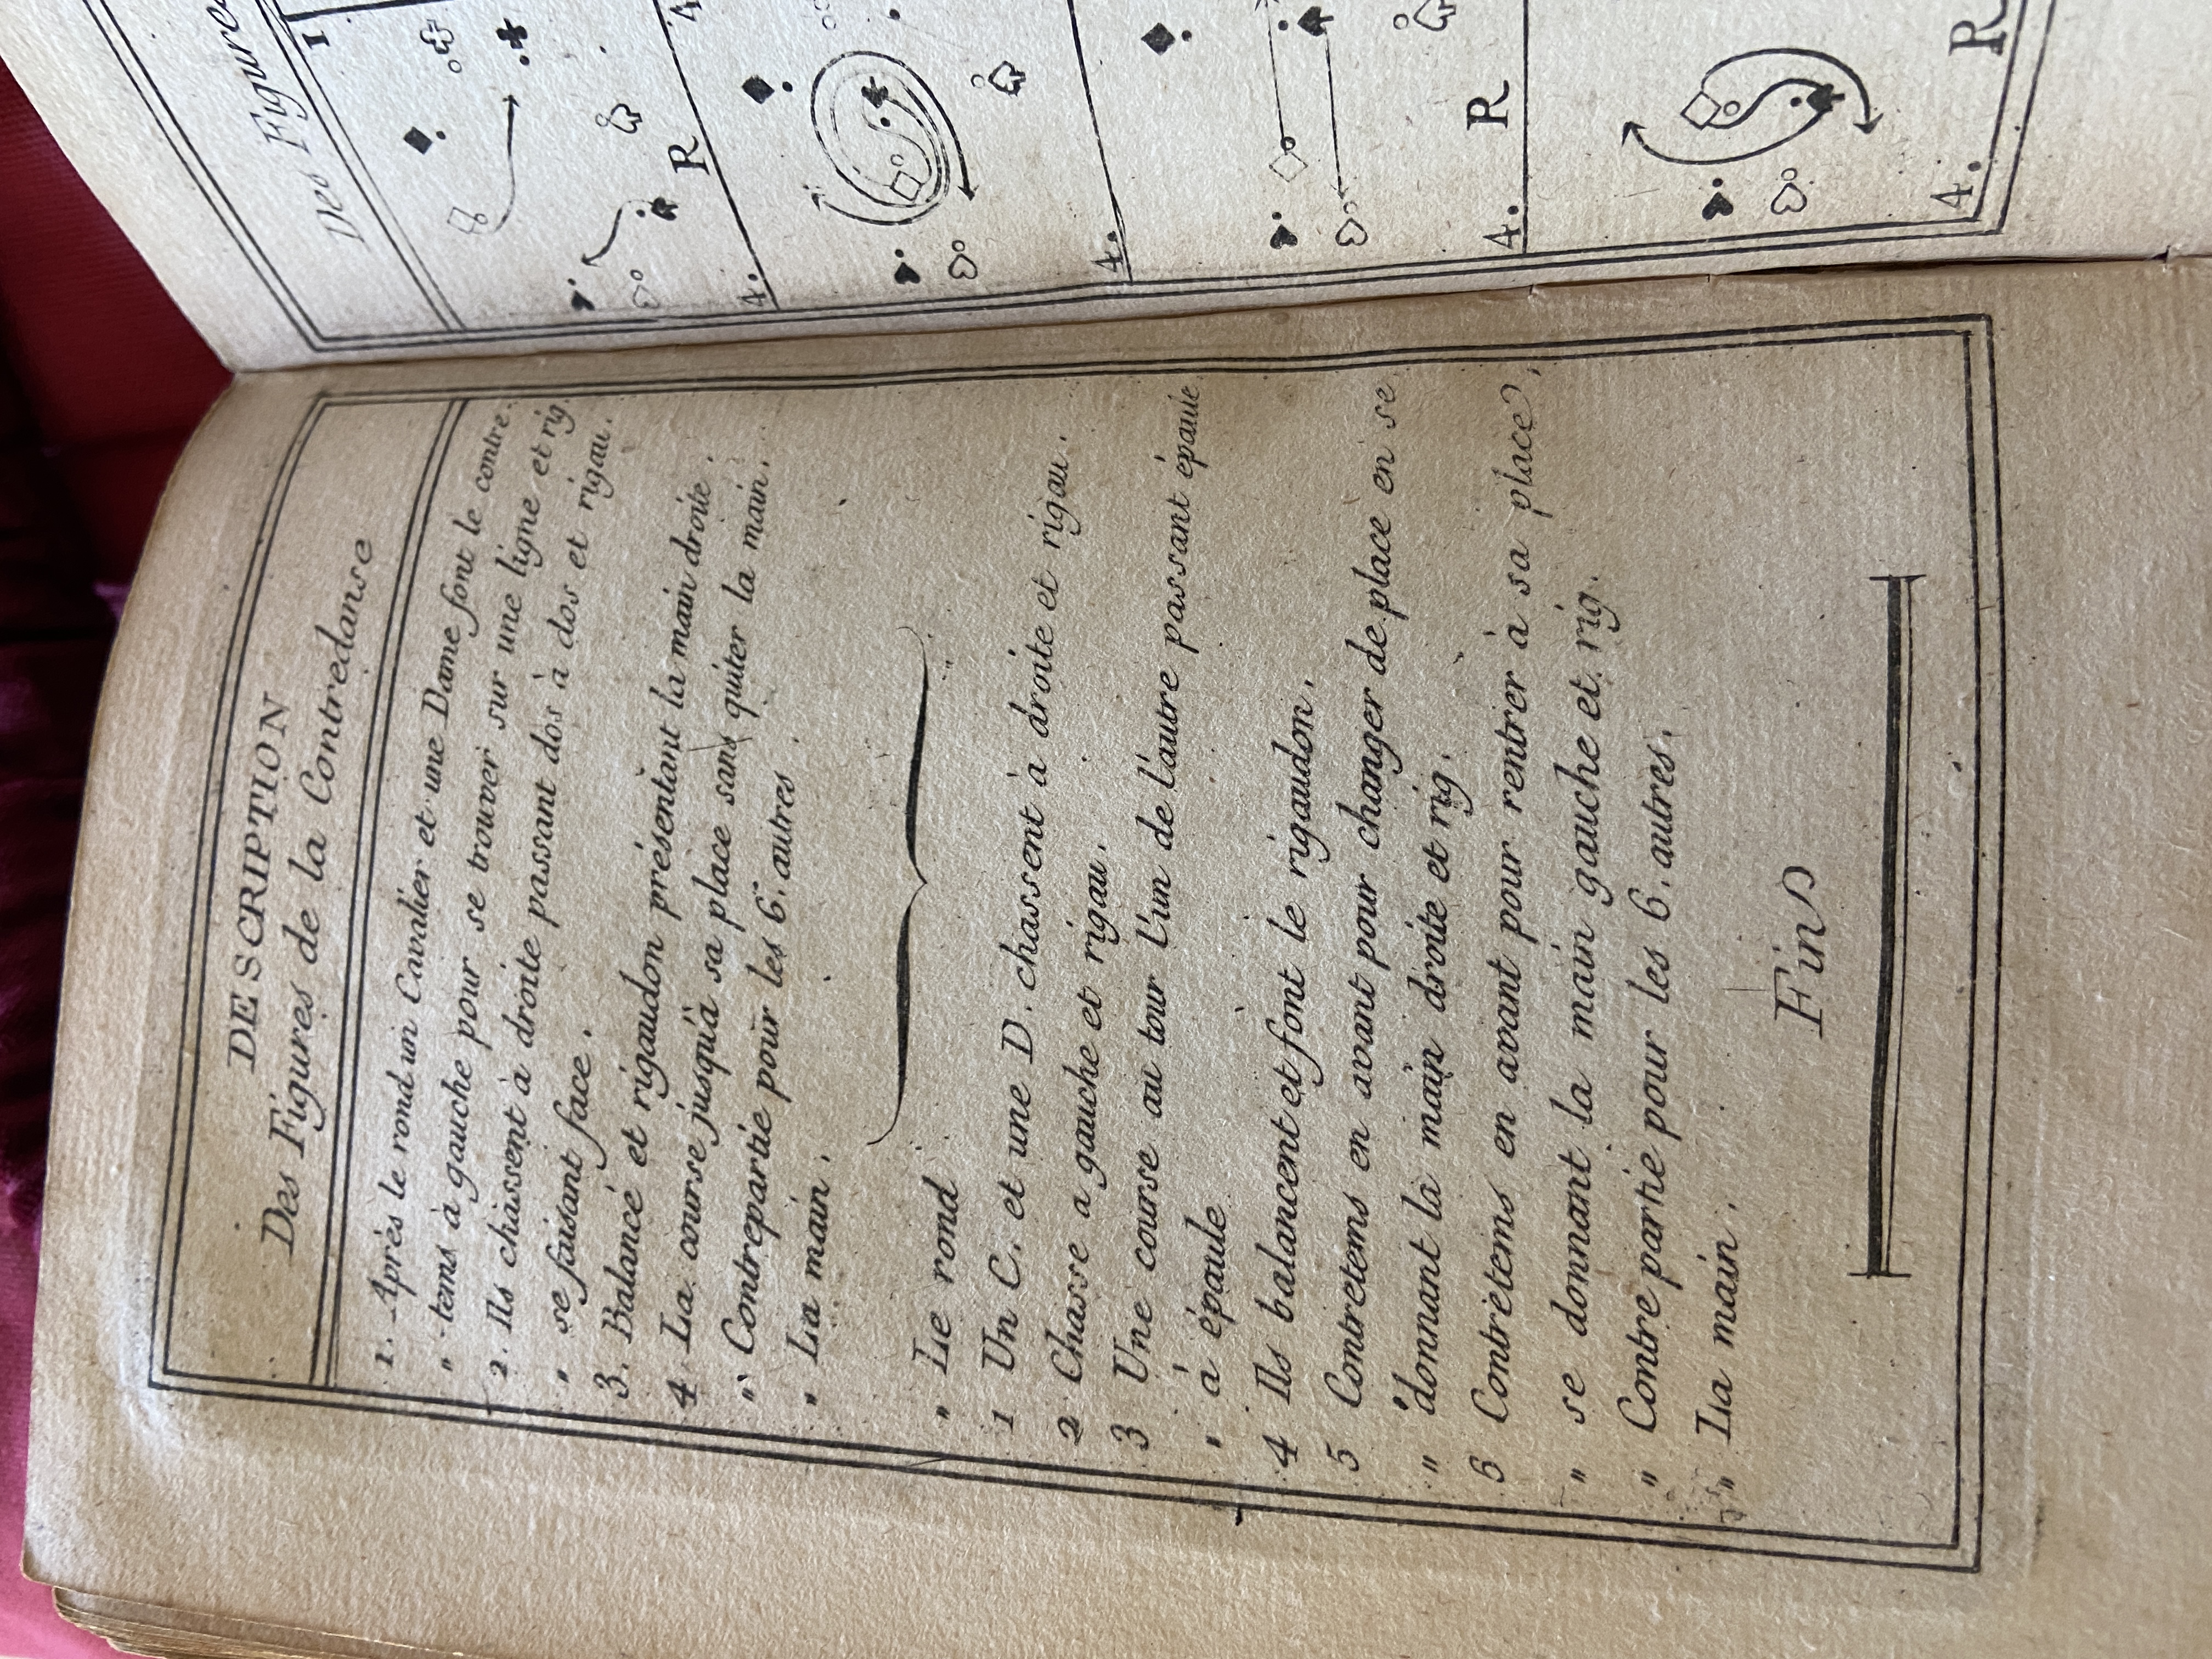 DESCRIPTION
Des Figures de la Contredanse
1. Après le rond un Cavalier et une Dame font le contre.
„ tems à gauche pour se trouver sur une ligne et rig.
2. Ils chassent à droite passant dos à dos et rigau.
„ se faisant face.
3. Balancé et rigaudon présentant la main droite.
4. La course jusqu'à sa place sans quiter la main.
„ Contrepartie pour les 6. autres.
„ La main.
„ Le rond
1 Un C. et une D. chassent à droite et rigau.
2 Chasse a gauche et rigau.
3 Une course au tour l'un de l'autre passant épaule
„ à épaule
4 Ils balancent et font le rigaudon.
5 Contretems en avant pour changer de place en se
„ donnant la main droite et rig.
6 Contretems en avant pour rentrer à sa place,
„ se donnant la main gauche et rig.
„ Contre partie pour les 6. autres.
„ La main.
Fin
Des Figures
1
R
4.
4
4.
R
4.
R
4.